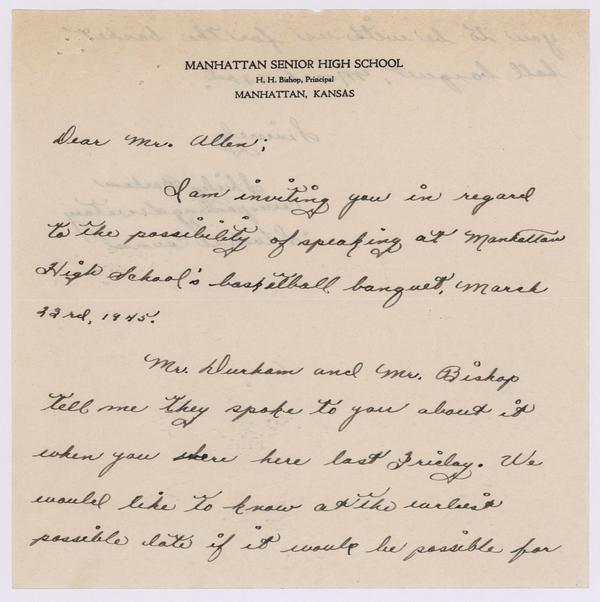 MANHATTAN SENIOR HIGH SCHOOL
H. H. Bishop, Principal
MANHATTAN, KANSAS
Dear Mr. Allen;
I am inviting you in regard
to the possibility of speaking at Manhattan
High School's basketball banquet, March
22rd, 1945.
Mr. Durham and Mr. Bishop
tell me they spoke to you about it
when you were here last Friday. We
would like to know at the earliest
possible date if it would be possible for